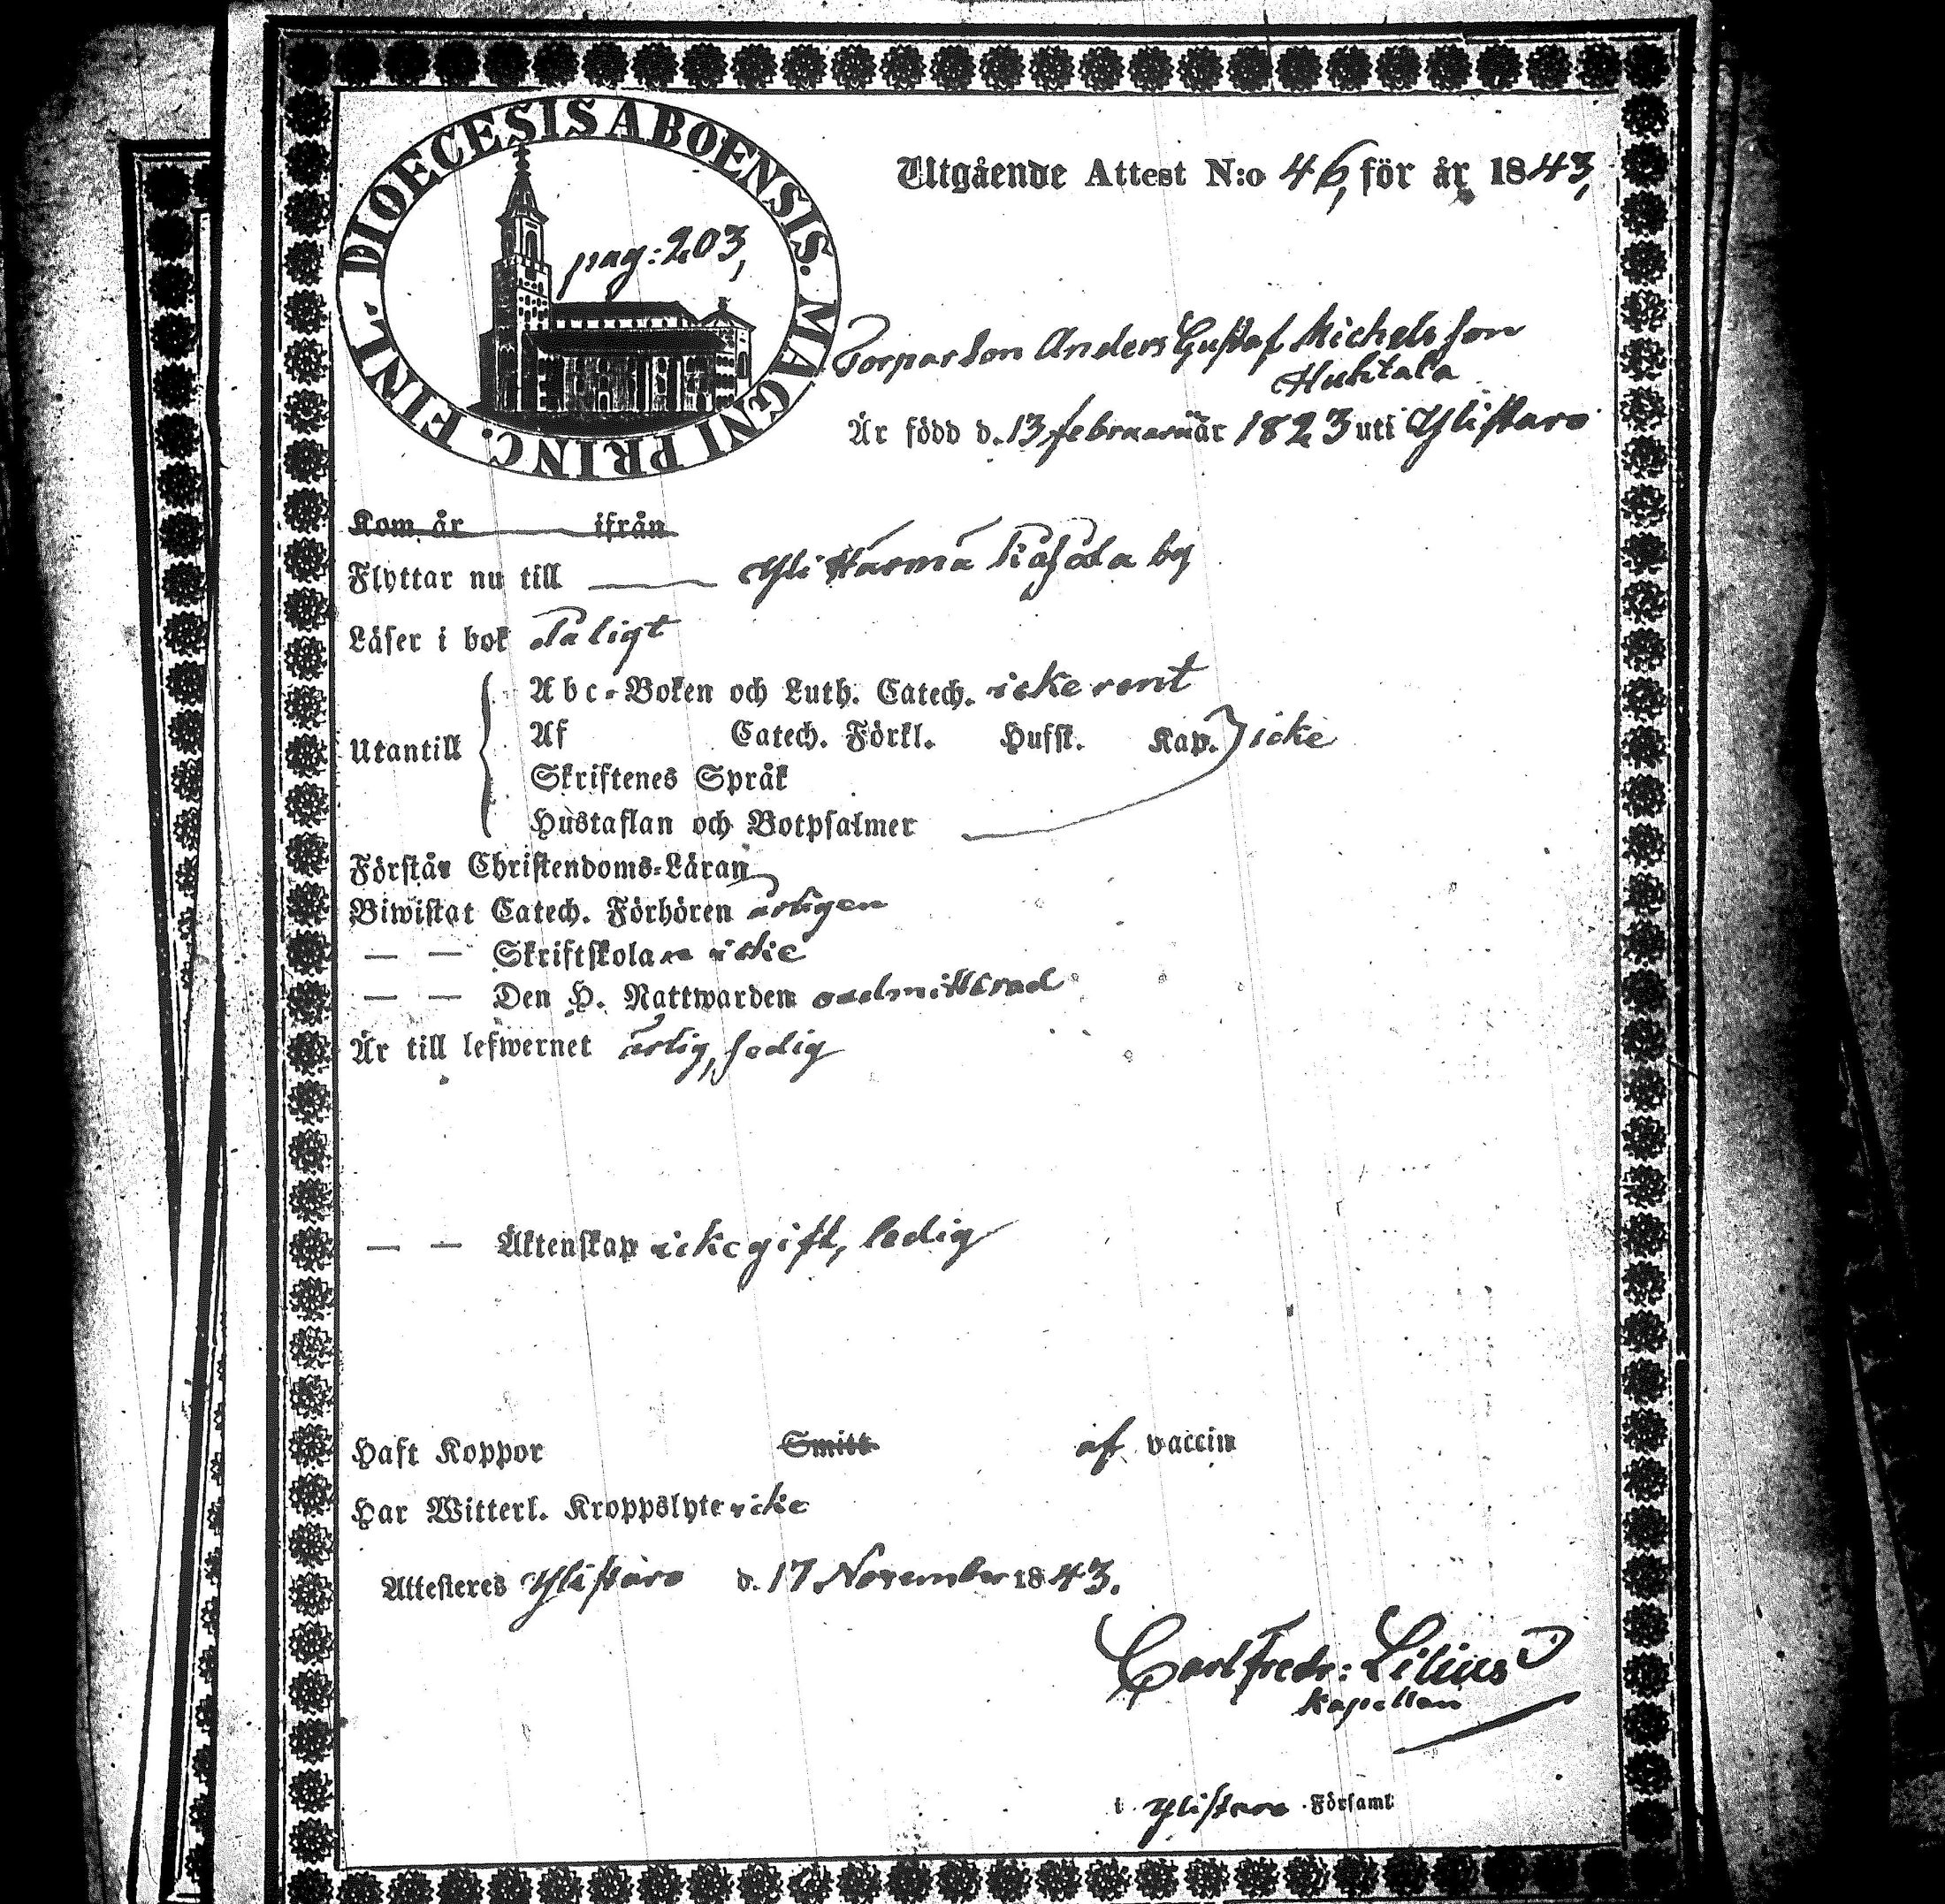 DIOECESIS ABOENSIS. MAGNI PRINC. FINL.
pag: 203,
Utgående Attest N:o 46, för år 1843,
Torparson Anders Gustaf Michelsson
Huhtala
Är född d. 13 februarii år 1823 uti Ylistaro
Kom år ifrån
Flyttar nu till Ylihärmä by
Läser i bok Taligt
Utantill
Abc-Boken och Luth. Catech. icke rent
Af Catech. Förkl. Husst. Kap. icke
Skriftenes Språk
Hustaflan och Botpsalmer
Förstår Christendoms-Läran
Biwistat Catech. Förhören årligen
— — Skriftskolan icke
— — Den H. Nattwarden oadmitterad
Är till lefwernet ärlig, sedig
— — Äktenskap icke gift, ledig
Haft Koppor Smitt af vaccin
Har Witterl. Kroppslyte icke
Attesteres Ylistaro d. 17 November 1843.
Carl Fredr: Lilius
Kapellan
i Ylistaro Församl